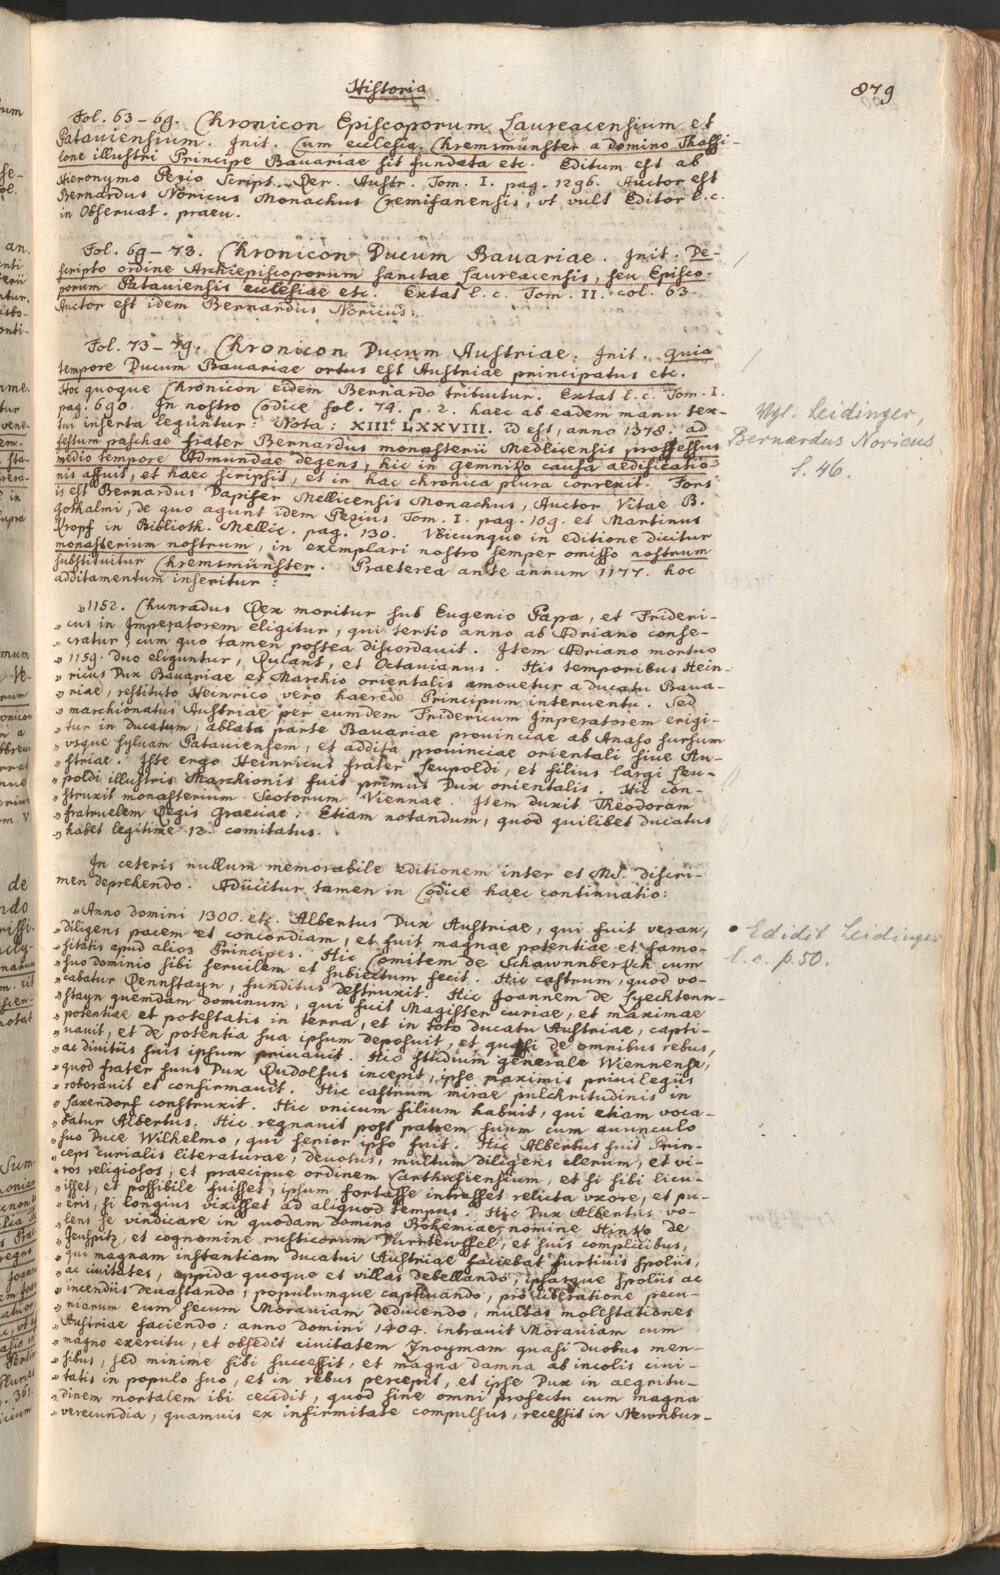 Historia
879
Fol. 63-69. Chronicon Episcoporum Laureacensium et
Patauiensium. Jnit. Cum ecclesia Chremsmünster a domino Thassi-
lone illustri Principe Bauariae sit fundata etc. Editum est ab
Hieronymo Pezio Script. Rer. Austr. Tom. I. pag. 1296. Auctor est
Bernardus Noricus Monachus Cremifanensis, vt vult Editor l. c.
in Obseruat. praeu.
Fol. 69-73. Chronicon Ducum Bauariae. Jnit. De-
scripto ordine Archiepiscoporum sanctae Laureacensis, seu Episco-
porum Patauiensis ecclesiae etc. Extat l. c. Tom. II. col. 63.
Auctor est idem Bernardus Noricus.
Fol. 73-79. Chronicon Ducum Austriae. Jnit. quia
tempore Ducum Bauariae ortus est Austriae principatus etc.
Hoc quoque Chronicon eidem Bernardo tribuitur. Extat l. c. Tom. I.
pag. 690. In nostro Codice fol. 74. p. 2. haec ab eadem manu tex-
tui inserta leguntur: Nota: XIIIc LXXVIII. id est, anno 1378. ad
festum paschae frater Bernardus monasterii Medlicensis professus
medio tempore Admundae degens, hic in Gemniko causa aedificatio-
nis affuit, et haec scripsit, et in hac chronica plura correxit. Fors
is est Bernardus Dapifer Mellicensis Monachus, Auctor Vitae B.
Gothalmi, de quo agunt idem Pezius Tom. I. pag. 109. et Martinus
Kropf in Biblioth. Mellic. pag. 130. Vbicunque in editione dicitur
monasterium nostrum, in exemplari nostro semper omisso nostrum
substituitur Chremsmünster. Praeterea ante annum 1177. hoc
additamentum inseritur:
Vgl. Leidinger,
Bernardus Noricus
S. 46.
„1152. Chunradus Rex moritur sub Eugenio Papa, et Frideri-
„cus in Imperatorem eligitur, qui tertio anno ab Adriano conse-
„cratur, cum quo tamen postea discordauit. Jtem Adriano mortuo
„1159. duo eliguntur, Rulant, et Octauianus. His temporibus Hein-
„ricus Dux Bauariae et Marchio orientalis amouetur a ducatu Baua-
„riae, restituto Heinrico vero haerede Principum interuentu. Sed
„marchionatus Austriae per eumdem Fridericum Jmperatorem erigi-
„tur in ducatum, ablata parte Bauariae prouinciae ab Anaso sursum
„vsque syluam Patauiensem, et addita prouinciae orientali siue Au-
„striae. Iste ergo Heinricus frater Leupoldi, et filius largi Leu-
„poldi illustris Marchionis fuit primus Dux orientalis. Hic con-
„struxit monasterium Scotorum Viennae. Jtem duxit Theodoram
„fratruelem Regis Graeciae. Etiam notandum, quod quilibet ducatus
„habet legitime 12. comitatus.
In ceteris nullum memorabile editionem inter et MS. discri-
men deprehendo. Adiicitur tamen in Codice haec continuatio:
„Anno domini 1300. etc. Albertus Dux Austriae, qui fuit verax,
„diligens pacem et concordiam, et fuit magnae potentiae et famo-
„sitatis apud alios Principes. Hic Comitem de Schawnnberkch cum
„suo dominio sibi seruilem et subiectum fecit. Hic castrum, quod vo-
„cabatur Rennstayn, funditus destruxit. Hic Joannem de Lyechtenn-
„stayn quemdam dominum, qui fuit Magister curiae, et maximae
„potentiae et potestatis in terra, et in toto ducatu Austriae, capti-
„uauit, et de potentia sua ipsum deposuit, et quasi de omnibus rebus,
„ac diuitiis suis ipsum priuauit. Hic studium generale Wiennense,
„quod frater suus Dux Rudolfus incepit, ipse maximis priuilegiis
„roborauit et confirmauit. Hic castrum mirae pulchritudinis in
„Laxendorf construxit. Hic vnicum filium habuit, qui etiam voca-
„batur Albertus. Hic regnauit post patrem suum cum auunculo
„suo Duce Wilhelmo, qui senior ipso fuit. Hic Albertus fuit Prin-
„ceps curialis literaturae, deuotus, multum diligens clerum, et vi-
„ros religiosos, et praecipue ordinem Carthusiensium, et si sibi licu-
„isset, et possibile fuisset, ipsum fortasse intrasset relicta vxore, et pu-
„eris, si longius vixisset ad aliquod tempus. Hic Dux Albertus vo-
„lens se vindicare in quodam domino Bohemiae, nomine Hintko de
„Jeuspitz, et cognomine rusticorum Durrteuffel, et suis complicibus,
„qui magnam instantiam ducatui Austriae faciebat furtiuis spoliis,
„ac ciuitates, oppida quoque et villas debellando, ipsasque spoliis ac
„incendiis deuastando, populumque captiuando, pro liberatione pecu-
„niarum eum secum Morauiam deducendo, multas molestationes
„Austriae faciendo: anno domini 1404. intrauit Morauiam cum
„magno exercitu, et obsedit ciuitatem Znoymam quasi duobus men-
„sibus, sed minime sibi successit, et magna damna ab incolis ciui-
„tatis in populo suo, et in rebus percepit, et ipse Dux in aegritu-
„dinem mortalem ibi cecidit, quod sine omni profectu cum magna
„verecundia, quamuis ex infirmitate compulsus, recessit in Newnbur-
• Edidit Leidinger
l. c. p. 50.